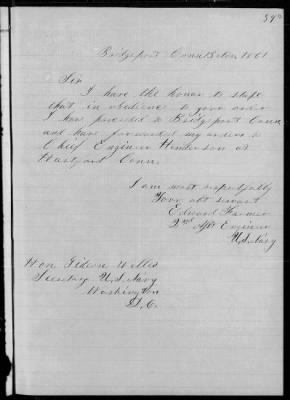 Bridgeport Conn 1861
Sir
I have the honor to state
that in obedience to your order
I have proceeded to Bridgeport Conn
and have forwarded my orders to
Chief Engineer Henderson at
Hartford Conn.
I am most respectfully
Your obt servant
Edward Farmer
2nd Asst Engineer
U.S. Navy
Hon Gideon Welles
Secretary U.S. Navy
Washington
D.C.